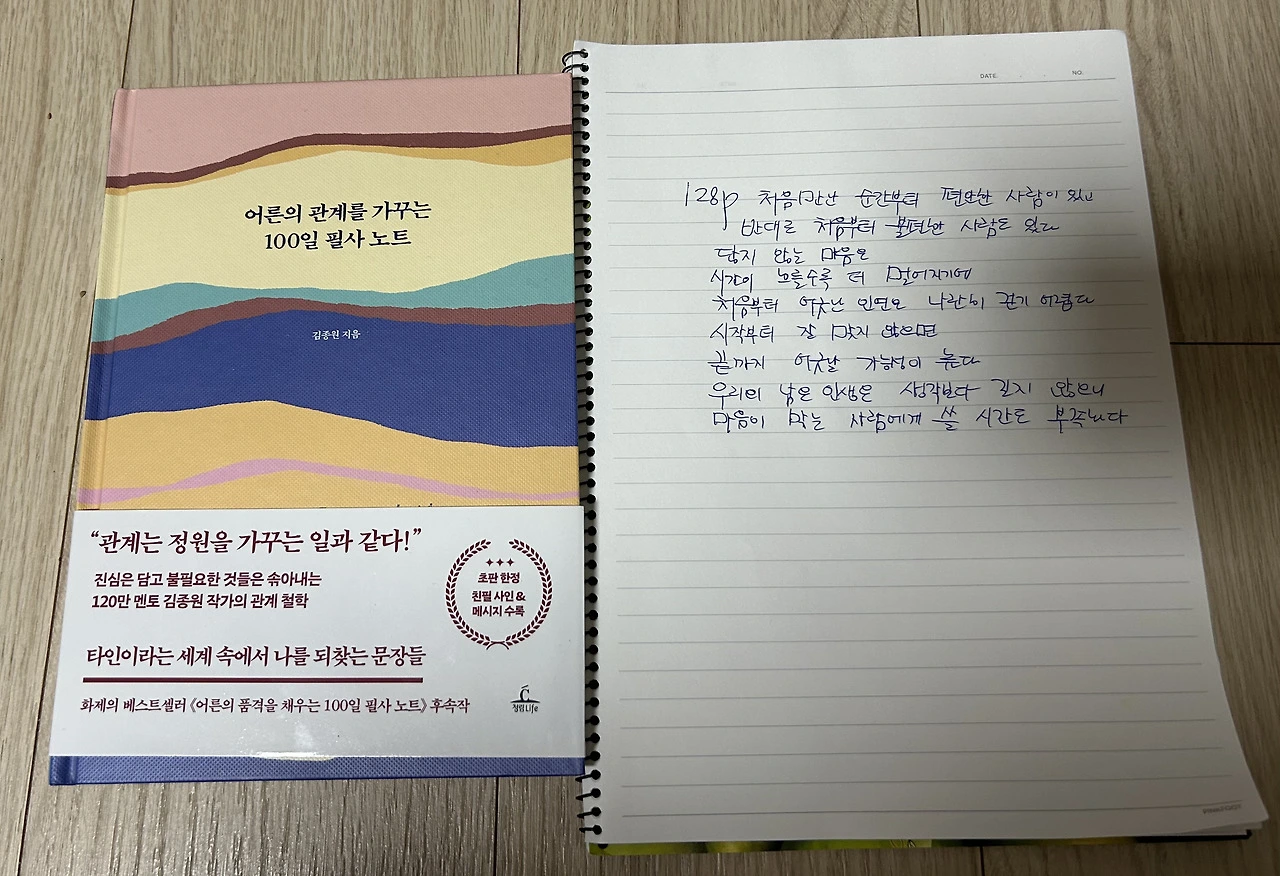 어른의 관계를 가꾸는
100일 필사 노트
김종원 지음
“관계는 정원을 가꾸는 일과 같다!”
진심은 담고 불필요한 것들은 솎아내는
120만 멘토 김종원 작가의 관계 철학
초판 한정
친필 사인 &
메시지 수록
타인이라는 세계 속에서 나를 되찾는 문장들
화제의 베스트셀러 《어른의 품격을 채우는 100일 필사 노트》 후속작
청림Life
DATE. . . NO.
128p 처음 만난 순간부터 편안한 사람이 있고
반대로 처음부터 불편한 사람도 있다
닿지 않는 마음은
시간이 흐를수록 더 멀어지기에
처음부터 어긋난 인연은 나란히 걷기 어렵다
시작부터 잘 맞지 않으면
끝까지 어긋날 가능성이 높다
우리의 남은 인생은 생각보다 길지 않으니
마음이 맞는 사람에게 쓸 시간도 부족하다